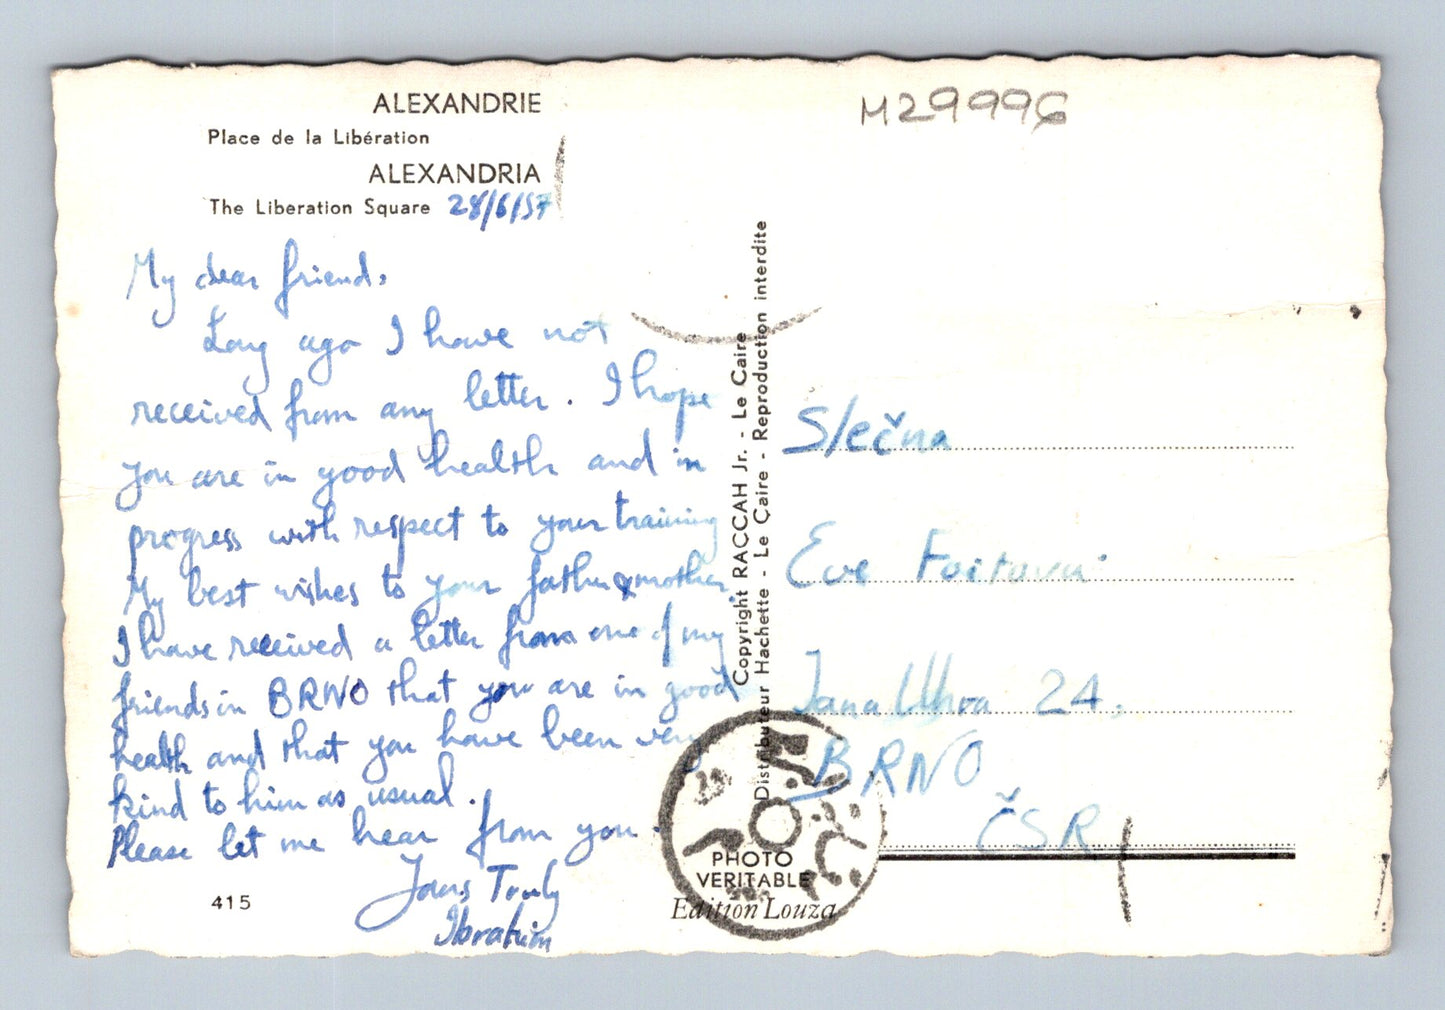 ALEXANDRIE
Place de la Libération
ALEXANDRIA
The Liberation Square 28/6/57
My dear friend,
Long ago I have not
received from any letter. I hope
you are in good health and in
progress with respect to your training
My best wishes to your father & mother.
I have received a letter from one of my
friends in BRNO that you are in good
health and that you have been very
kind to him as usual.
Please let me hear from you.
Yours Truly
Ibrahim
415
Copyright RACCAH Jr. - Le Caire
Distributeur Hachette - Le Caire - Reproduction interdite
PHOTO
VERITABLE
Edition Louza
M29996
Slečna
Eve
Jana Uhra 24,
BRNO
ČSR